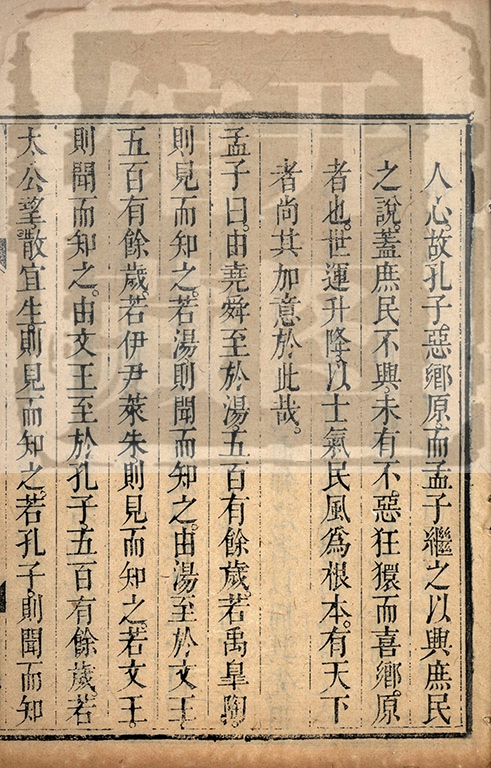 人心。故孔子惡鄉原。而孟子繼之以興庶民
之說。蓋庶民不興。未有不惡狂獧而喜鄉原
者也。世運升降。以士氣民風為根本。有天下
者尚其加意於此哉。
孟子曰。由堯舜至於湯。五百有餘歲。若禹皋陶。
則見而知之。若湯則聞而知之。由湯至於文王
五百有餘歲。若伊尹萊朱則見而知之。若文王。
則聞而知之。由文王至於孔子五百有餘歲。若
太公望散宜生。則見而知之。若孔子。則聞而知